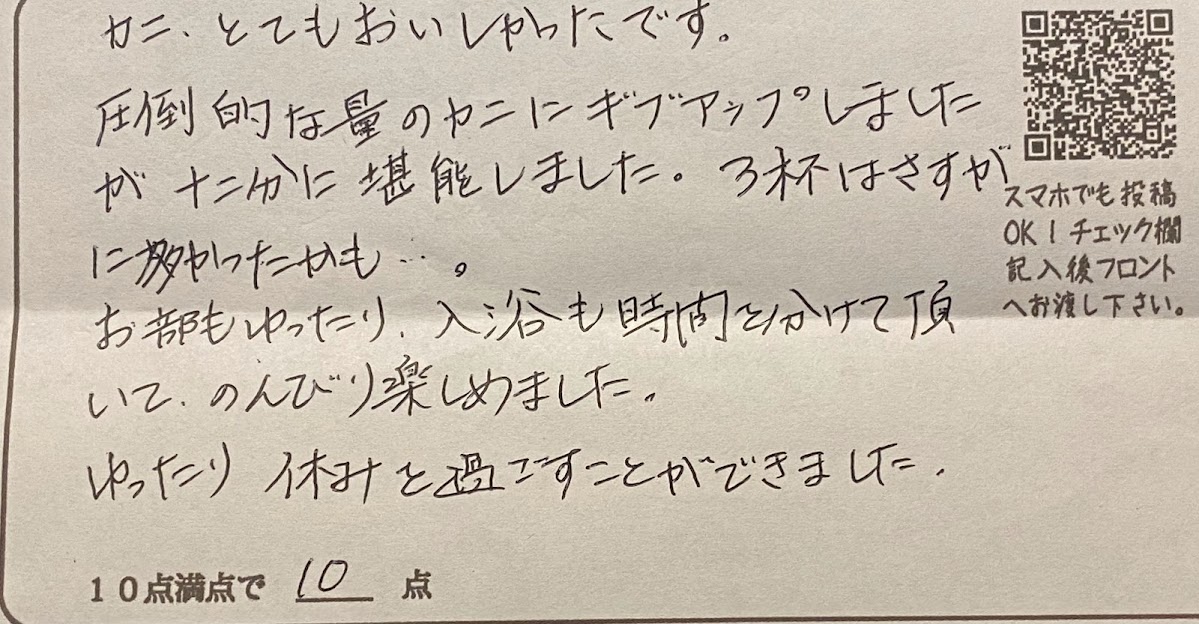 カニ、とてもおいしかったです。
圧倒的な量のカニにギブアップしました
が十二分に堪能しました。3杯はさすが
に多かったかも…。
お部もゆったり、入浴も時間を分けて頂
いて、のんびり楽しめました。
ゆったり休みを過ごすことができました。
スマホでも投稿
OK！チェック欄
記入後フロント
へお渡し下さい。
10点満点で 10 点